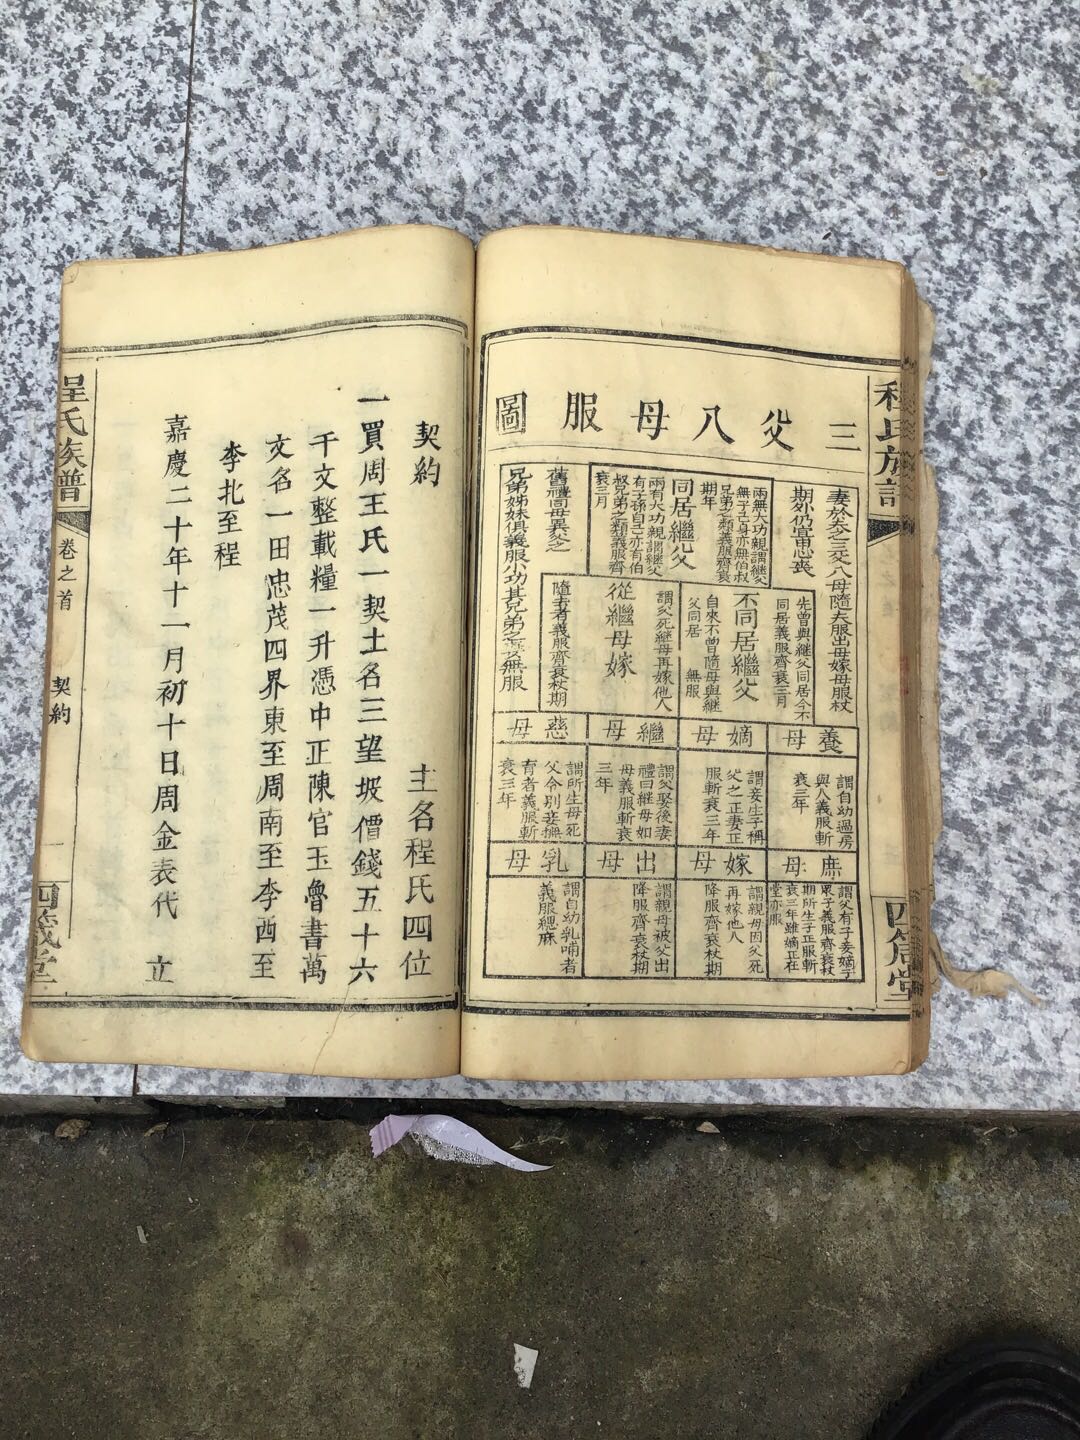 三父八母服圖
妻於夫之三父八母隨夫服出母嫁母服杖
期外仍宜思喪
兩無大功親謂繼父
無子孫己身亦無伯叔
兄弟之類義服齊衰
期年
同居繼父
兩有大功親謂繼父
有子孫自己亦有伯
叔兄弟之類義服齊
衰三月
舊禮同母異父之
兄弟姊妹俱義服小功其兄弟之妻及無服
先曾與繼父同居今不
同居義服齊衰三月
不同居繼父
自來不曾隨母與繼
父同居 無服
謂父死繼母再嫁他人
從繼母嫁
隨去者義服齊衰杖期
養母
謂自幼過房
與人義服斬
衰三年
嫡母
謂妾生子稱
父之正妻正
服斬衰三年
繼母
謂父娶後妻
禮曰繼母如
母義服斬衰
三年
慈母
謂所生母死
父令別妾撫
育者義服斬
衰三年
庶母
謂父有子妾嫡子
眾子義服齊衰杖
期所生子正服斬
衰三年雖嫡正在
堂亦服
嫁母
謂親母因父死
再嫁他人
降服齊衰杖期
出母
謂親母被父出
降服齊衰杖期
乳母
謂自幼乳哺者
義服緦麻
契約 主名程氏四位
一買周王氏一契土名三望坡價錢五十六
千文整載糧一升憑中正陳官玉魯書萬
文名一田忠茂四界東至周南至李西至
李北至程
嘉慶二十年十一月初十日周金表代 立
程氏族譜
卷之首
契約
一